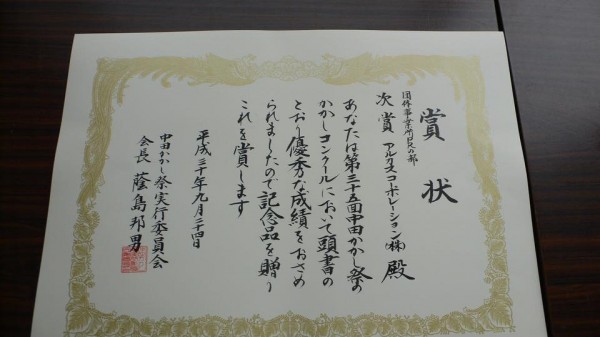 賞状
団体事業所の部
次賞 アルクスコーポレーション㈱ 殿
あなたは第三十五回中田かかし祭の
かかしコンクールにおいて頭書の
とおり優秀な成績をおさめ
られましたので記念品を贈り
これを賞します
平成三十年九月二十四日
中田かかし祭実行委員会
会長 蔭島邦男